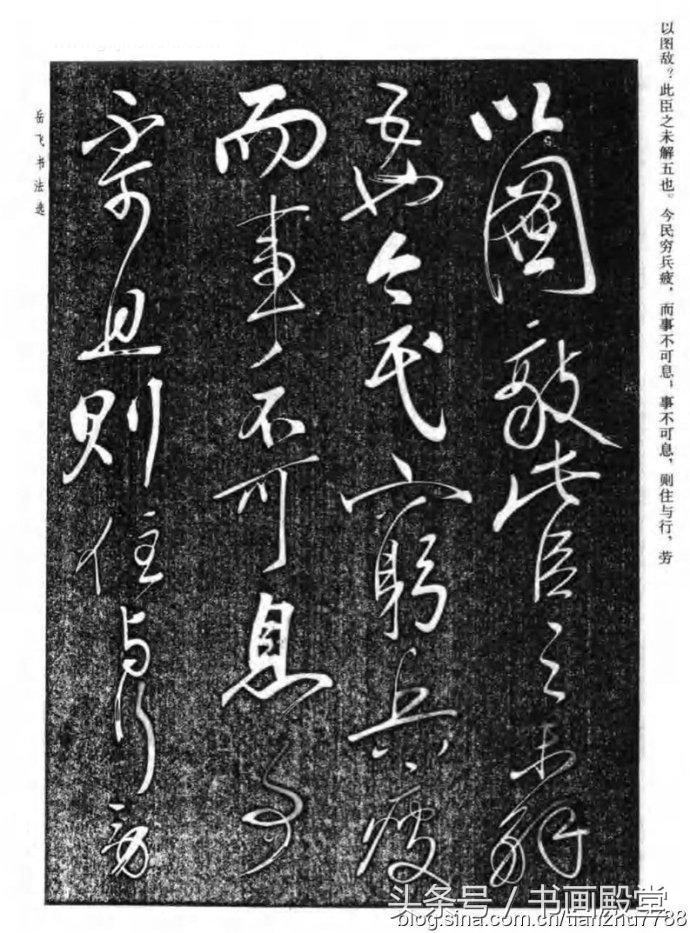 以图敌？此臣之未解五也。今民穷兵疲，而事不可息；事不可息，则住与行，劳
以圖敵此臣之未解
五也今民窮兵疲
而事不可息事
不可息則住与行勞
岳飞书法选
头条号 / 书画殿堂
blog.sina.com.cn/tianzhu7788